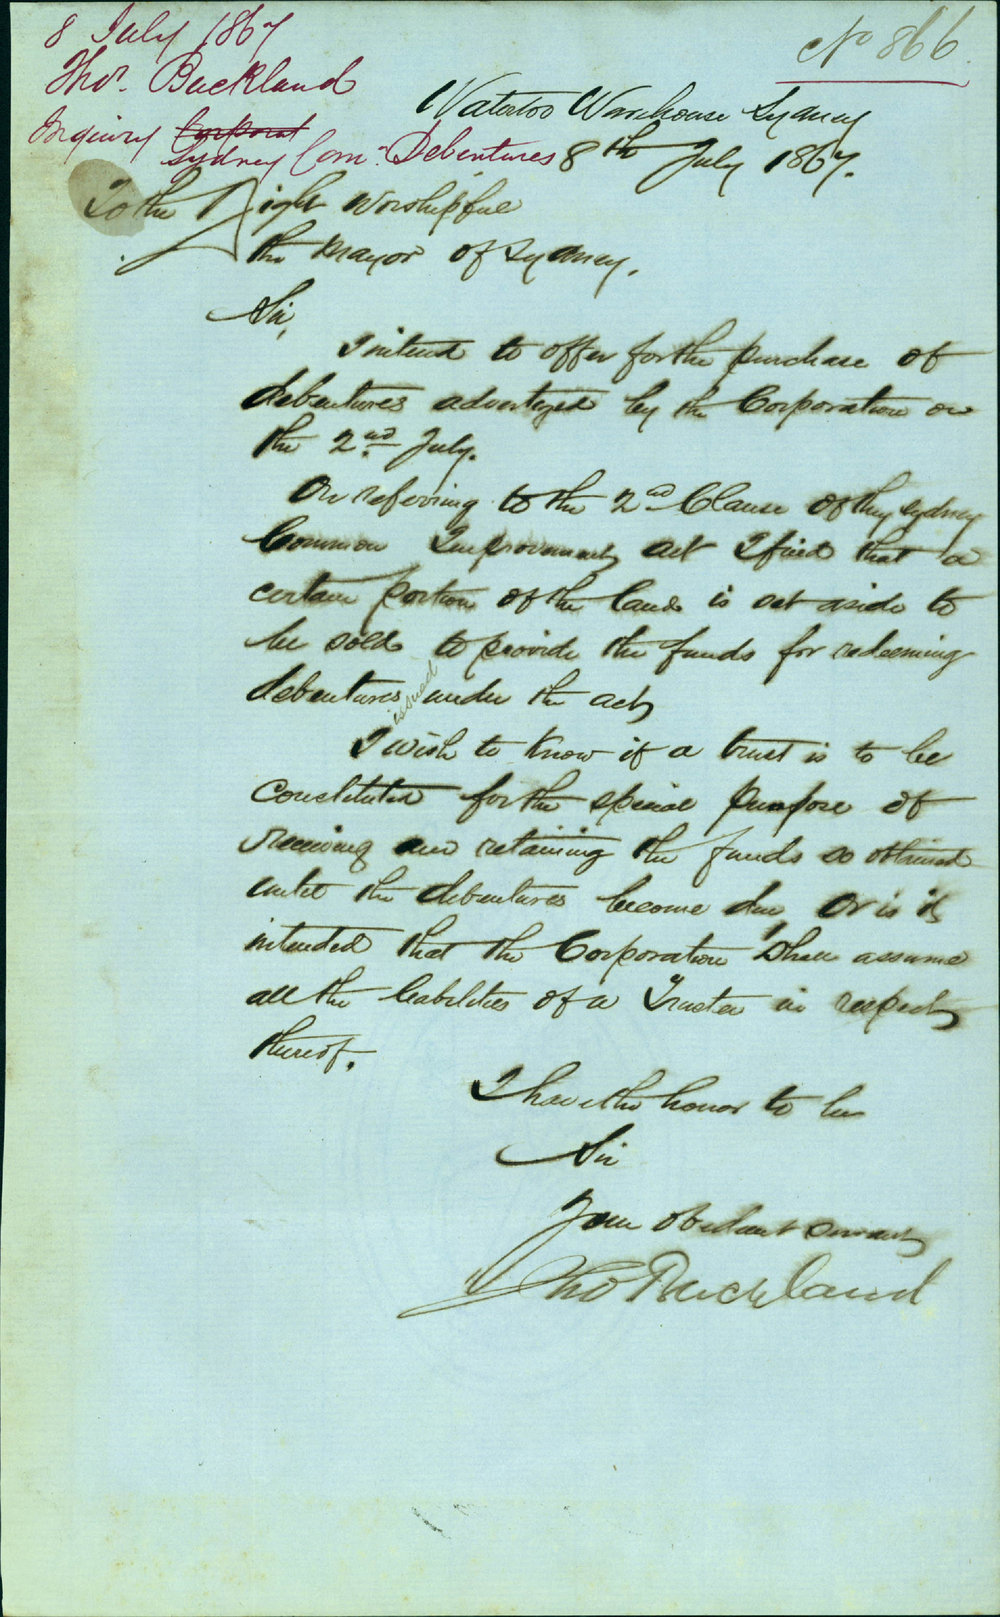 8 July 1867
No 866.
Thos. Buckland
Waterloo Warehouse Sydney
Inquiry Corporat
Sydney Comn. Debentures
8th July 1867.
To the Right Worshipful
the Mayor of Sydney.
Sir,
I intend to offer for the purchase of
debentures advertized by the Corporation on
the 2nd July.
On referring to the 2nd Clause of the Sydney
Common Improvement act I find that a
certain portion of the land is set aside to
be sold to provide the funds for redeeming
debentures issued under the act
I wish to know if a trust is to be
constituted for the special purpose of
receiving and retaining the funds so obtained
until the debentures become due, or is it
intended that the Corporation shall assume
all the liabilities of a Trustee in respect
thereof.
I have the honor to be
Sir
Your obedient servant
Tho Buckland